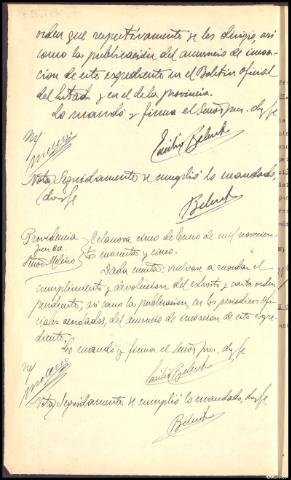 orden que respectivamente se les dirigio, asi
como la publicación del anuncio de incoa-
cion de este expediente en el Boletin oficial
del Estado y en el de la provincia.
Lo mandó y firma el Señor Juez. doy fe
M/
Emilio Belert
Nota Seguidamente se cumplió lo mandado,
doy fe
Belert
Providencia
Juez
Señor
Celanova cinco de enero de mil novecien-
tos cuarenta y cinco.
Dada cuenta: vuelvan a recordar el
cumplimiento y devolucion del exhorto y carta orden
pendiente, asi como la publicacion, en los periodicos ofi-
ciales acordados, del anuncio de incoacion de este expe-
diente.
Lo mandó y firma el Señor Juez. doy fe
M/
Emilio Belert
Nota Seguidamente se cumplió lo mandado, doy fe
Belert